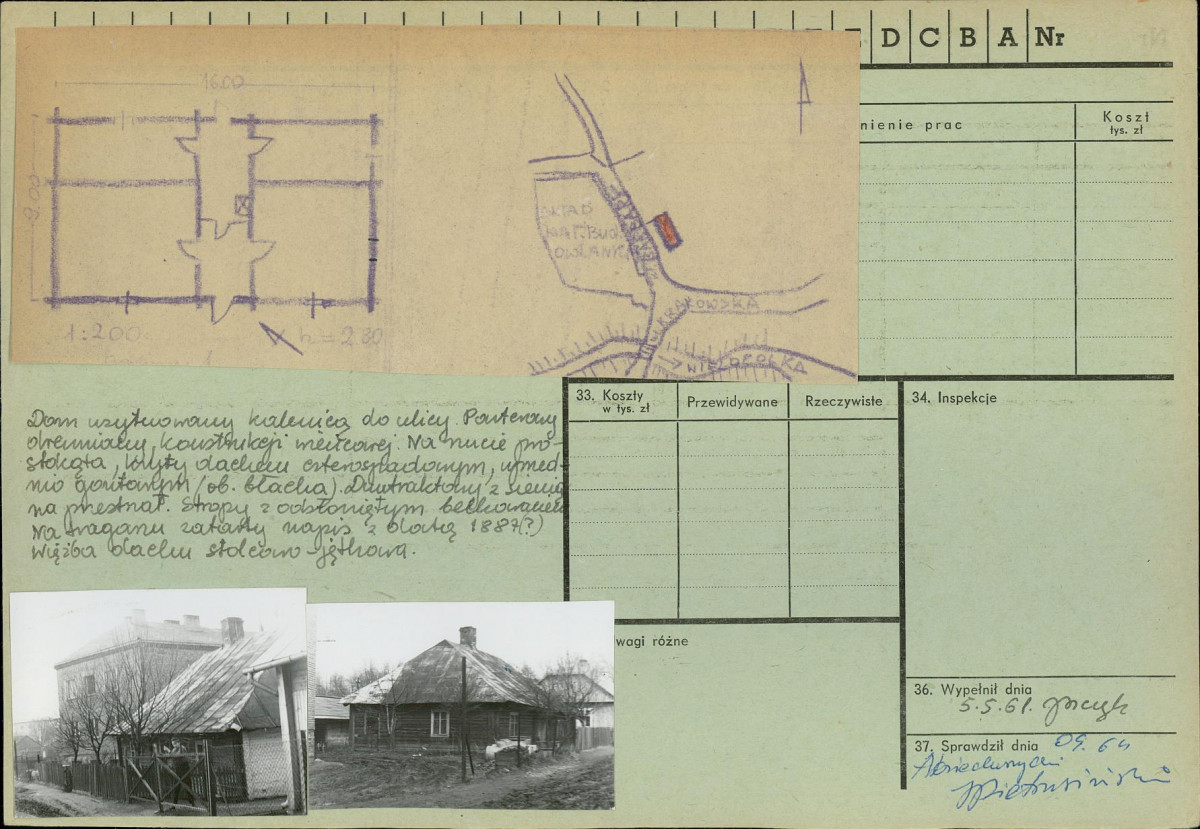 E D C B A Nr
16.00
9.00
1:200
h = 2.80
SKŁAD
MAT. Bud.
OWLANYCH
KRAKOWSKA
WIELOPOLKA
nienie prac
Koszt
tys. zł
Dom usytuowany kalenicą do ulicy. Parterowy
drewniany, konstrukcji wieńcowej. Na rzucie pro-
stokąta, kryty dachem czterospadowym, uprzed-
nio gontowym /ob. blacha/. Dwutraktowy z sienią
na przestrzał. Stropy z odsłoniętym belkowaniem
Na sraganu zatarty napis z datą 1887(?)
Więźba dachu stolcowo-jętkowa.
33. Koszty
w tys. zł
Przewidywane
Rzeczywiste
34. Inspekcje
wagi różne
36. Wypełnił dnia
5.5.61.
37. Sprawdził dnia 09.61